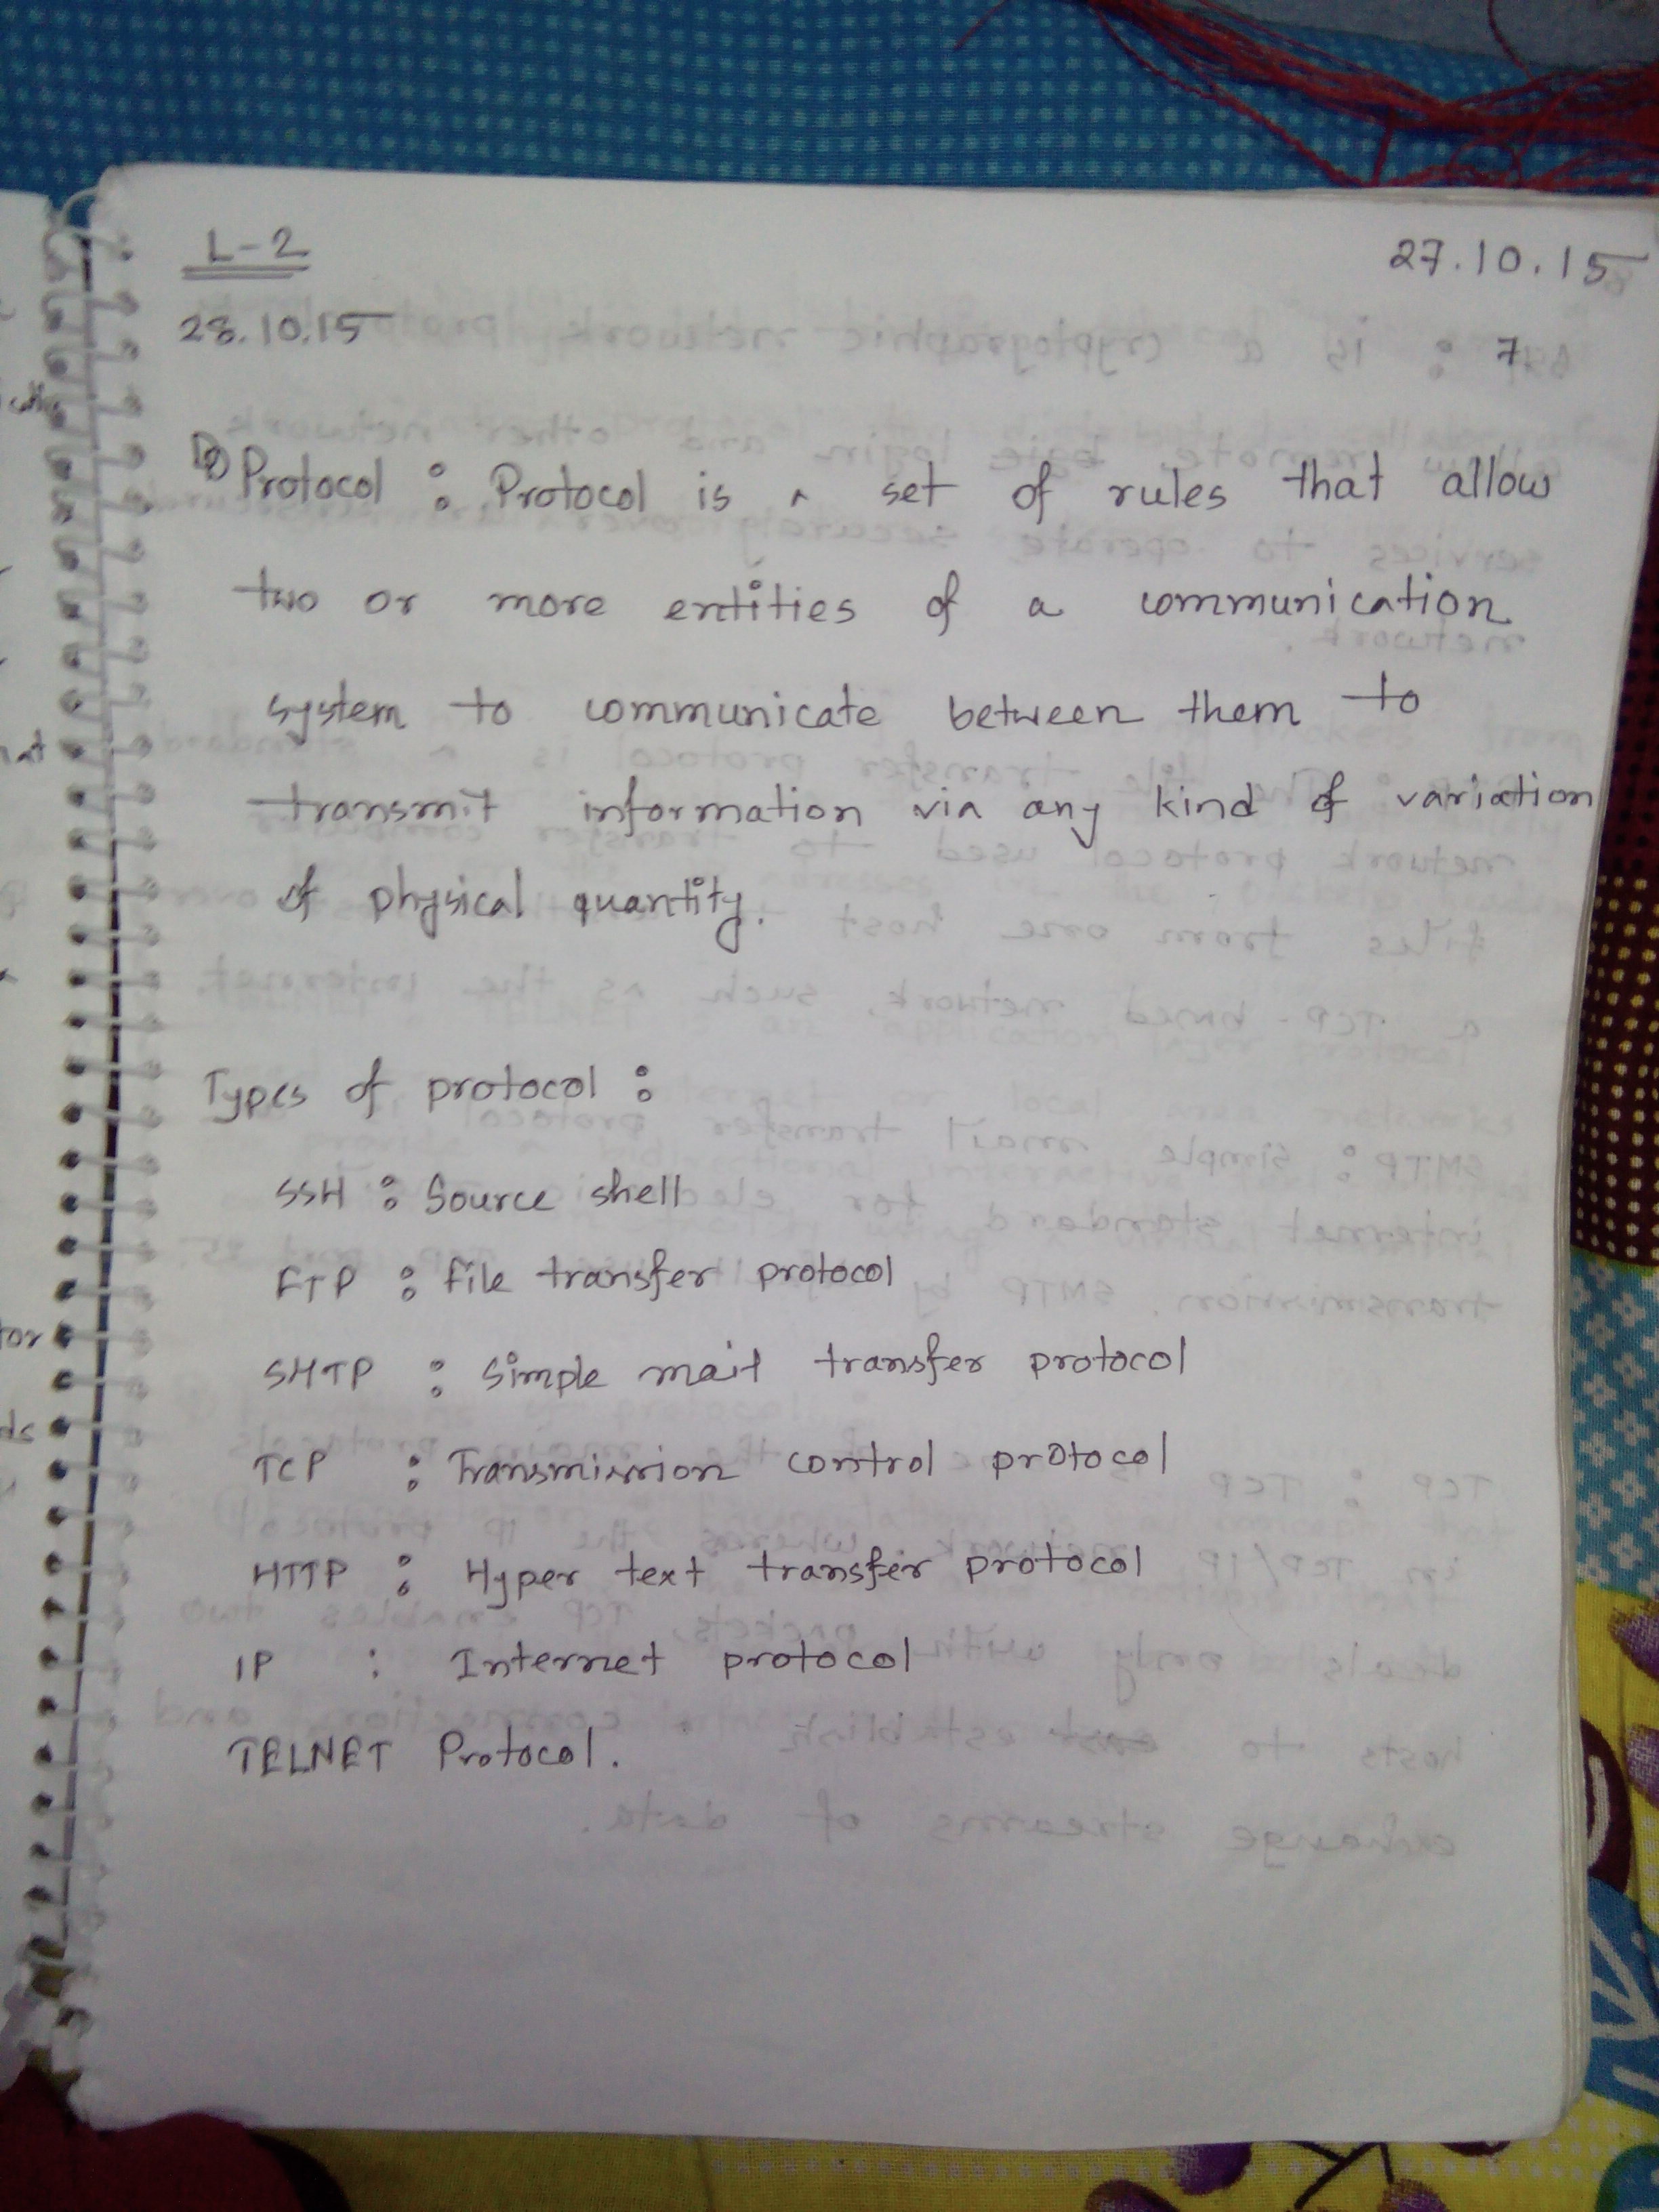 L-2
27.10.15
28.10.15
7
Protocol : Protocol is a set of rules that allow
two or more entities of a communication
system to communicate between them to
transmit information via any kind of variation
of physical quantity.
Types of protocol :
SSH : Source shell
FTP : File transfer protocol
SMTP : Simple mail transfer protocol
TCP : Transmission control protocol
HTTP : Hyper text transfer protocol
IP : Internet protocol
TELNET Protocol.